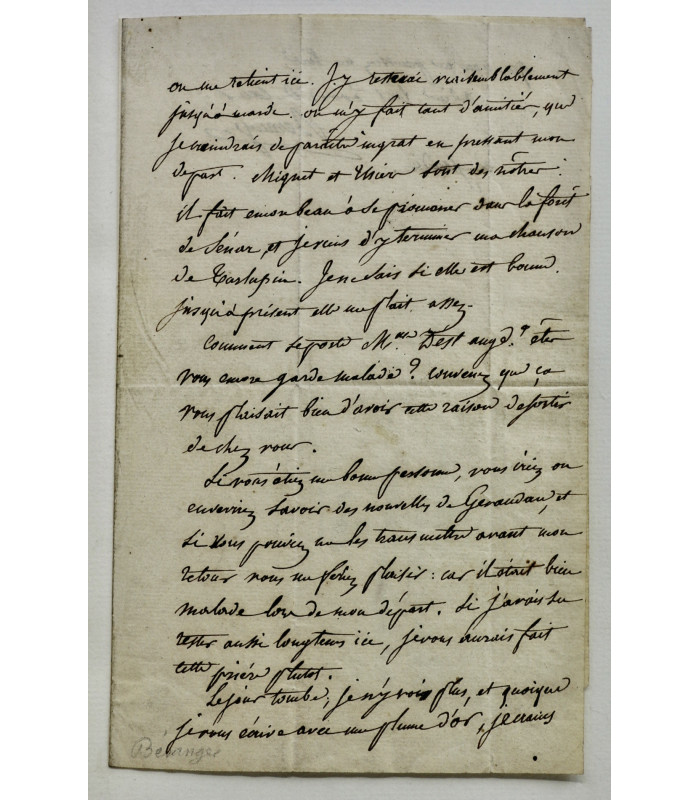 on me retient ici. J'y resterai vraisemblablement
jusqu'à mardi. on m'y fait tant d'amitiés, que
je craindrais de paraître ingrat en pressant mon
départ. Mignet et Thiers sont des nôtres.
il fait encor beau à se promener dans la forêt
de Sénar, et je viens d'y terminer ma chanson
de Je ne sais si elle est bonne.
jusqu'à présent elle me plait assez.
Comment se porte Mme êtes
vous encore garde malade? convenez que ça
vous plaisait bien d'avoir cette raison de sortir
de chez vous.
Si vous étiez une bonne personne, vous iriez ou
enverriez savoir des nouvelles de et
si vous pouviez me les transmettre avant mon
retour vous me feriez plaisir: car il était bien
malade lors de mon départ. Si j'avais su
rester aussi longtems ici, je vous aurais fait
cette prière plutôt.
Le jour tombe; je n'y vois plus, et quoique
je vous écrive avec une plume d'or, je crains
Béranger